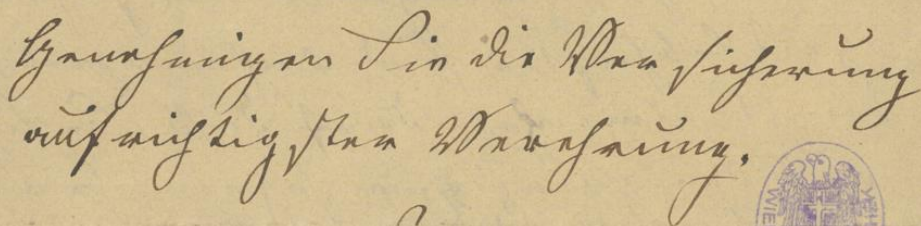 Genehmigen Sie die Versicherung
aufrichtigster Verehrung.
WIE